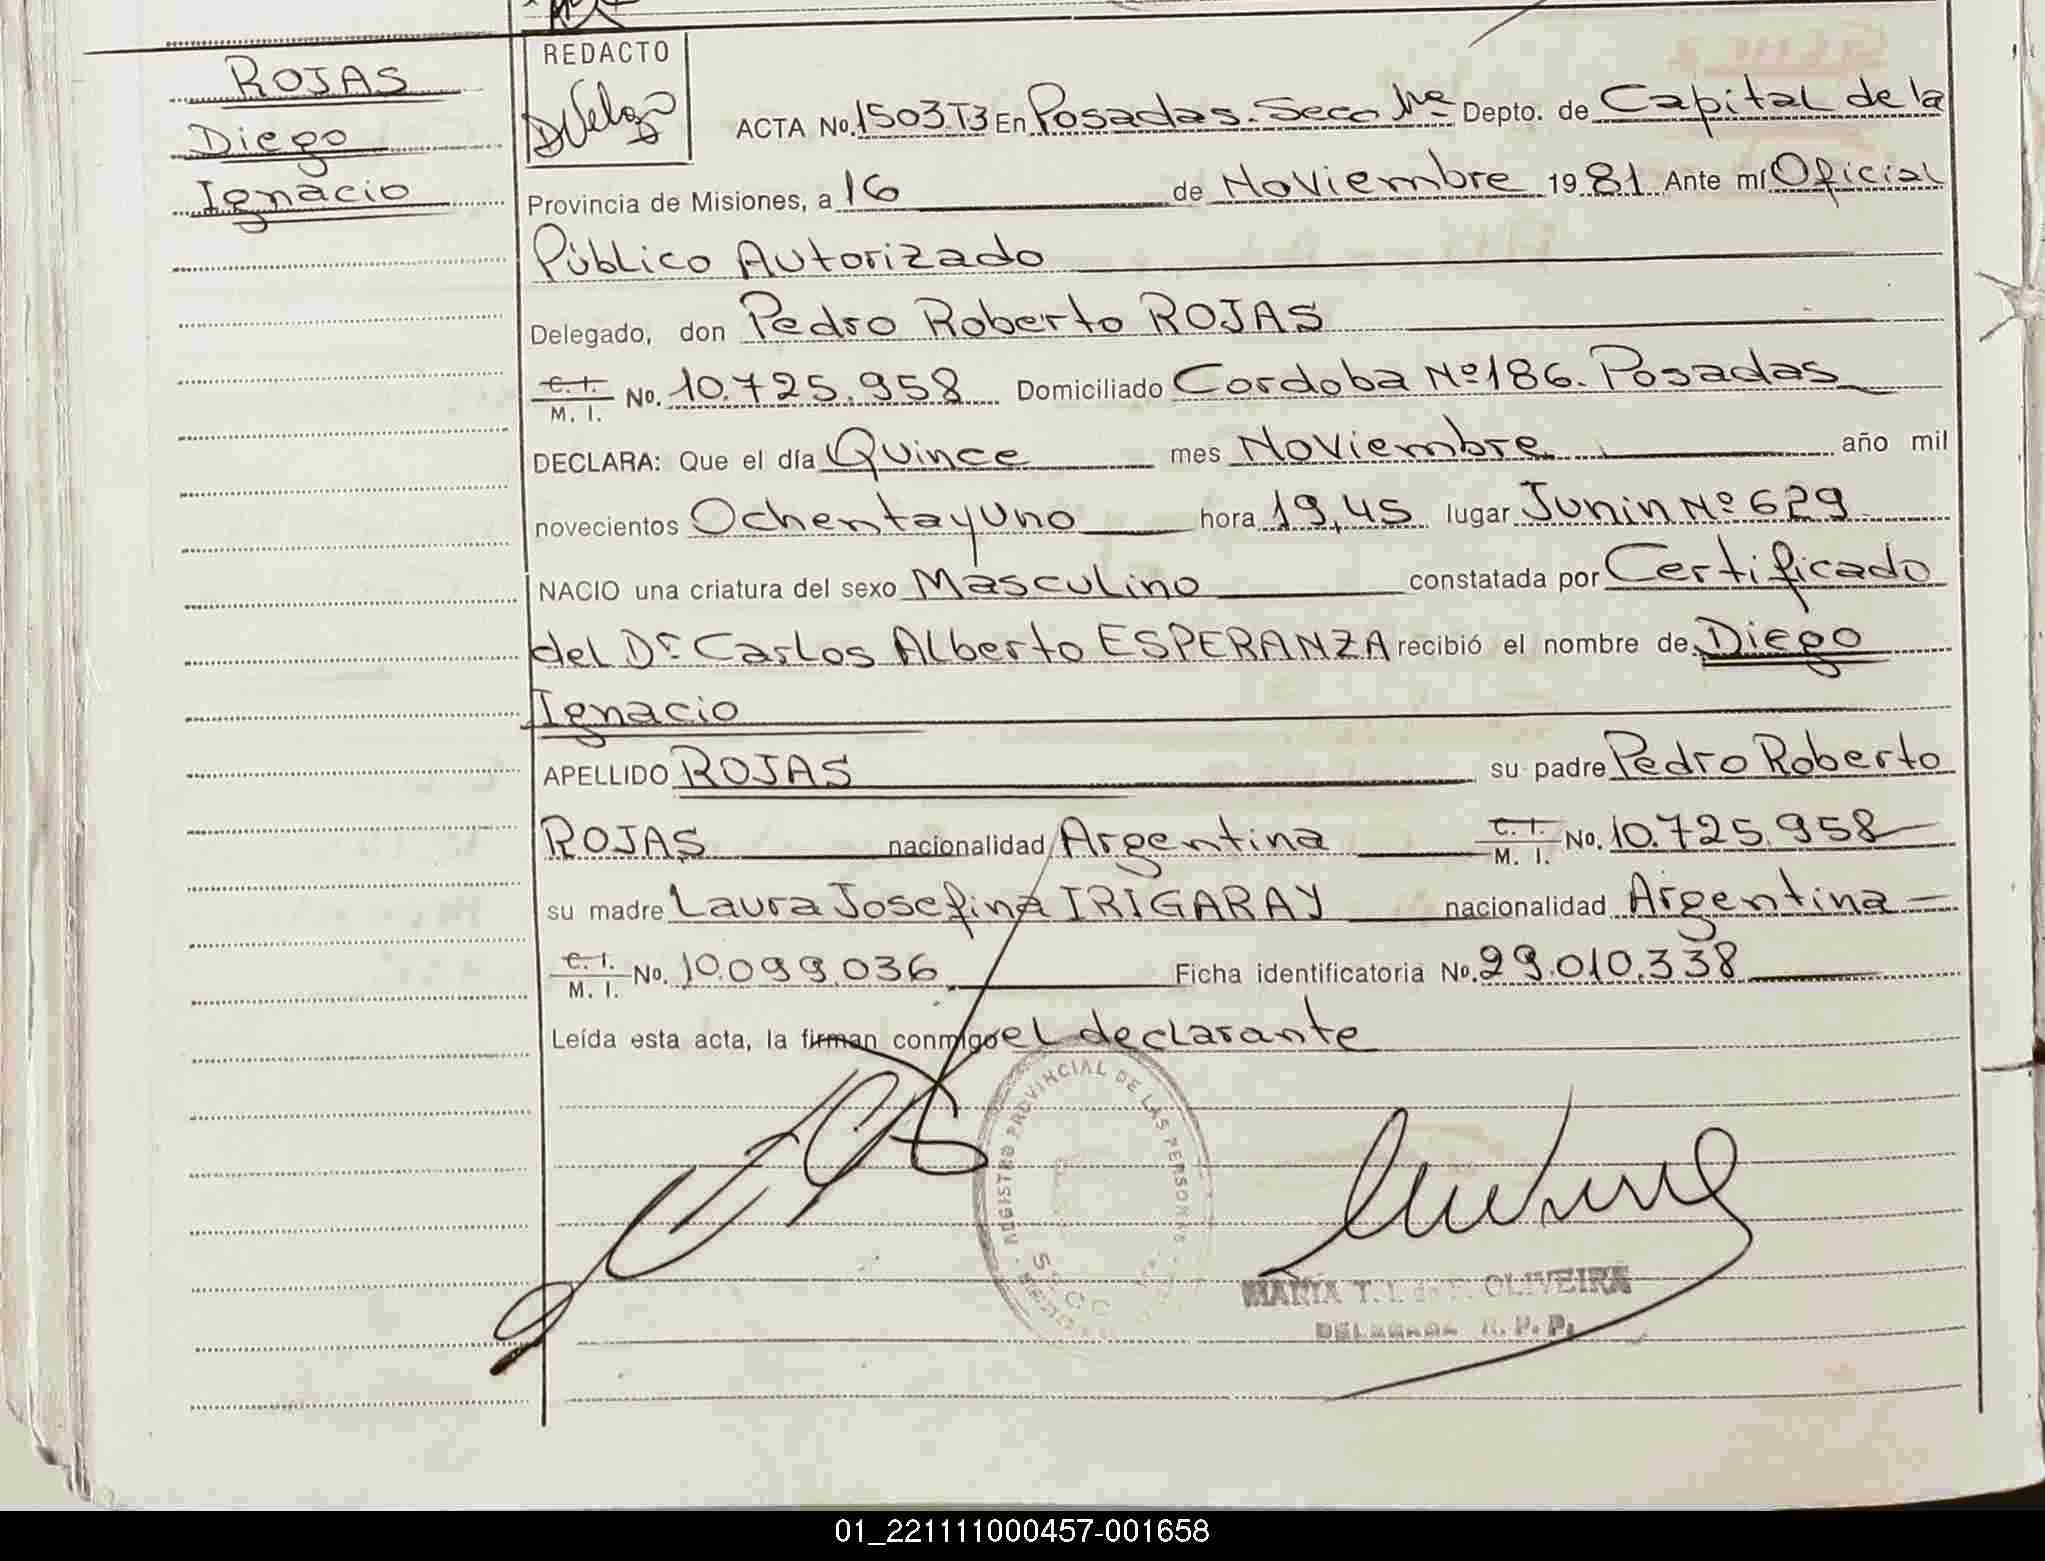 ROJAS
Diego
Ignacio
REDACTO
ACTA No. 1503 T3 En Posadas. Secc 1ª Depto. de Capital de la
Provincia de Misiones, a 16 de Noviembre 1981. Ante mí Oficial
Público Autorizado
Delegado, don Pedro Roberto ROJAS
C. I.
M. I. No. 10.725.958 Domiciliado Cordoba Nº 186. Posadas
DECLARA: Que el día Quince mes Noviembre año mil
novecientos Ochentayuno hora 19,45 lugar Junin Nº 629
NACIO una criatura del sexo Masculino constatada por Certificado
del Dr. Carlos Alberto ESPERANZA recibió el nombre de Diego
Ignacio
APELLIDO ROJAS su padre Pedro Roberto
ROJAS nacionalidad Argentina C. I.
M. I. No. 10.725.958
su madre Laura Josefina IRIGARAY nacionalidad Argentina
C. I.
M. I. No. 10.099.036 Ficha identificatoria No. 29.010.338
Leída esta acta, la firman conmigo el declarante
REGISTRO PROVINCIAL DE LAS PERSONAS
MARIA T. OLIVEIRA
DELEGADA R. P. P.
01_221111000457-001658